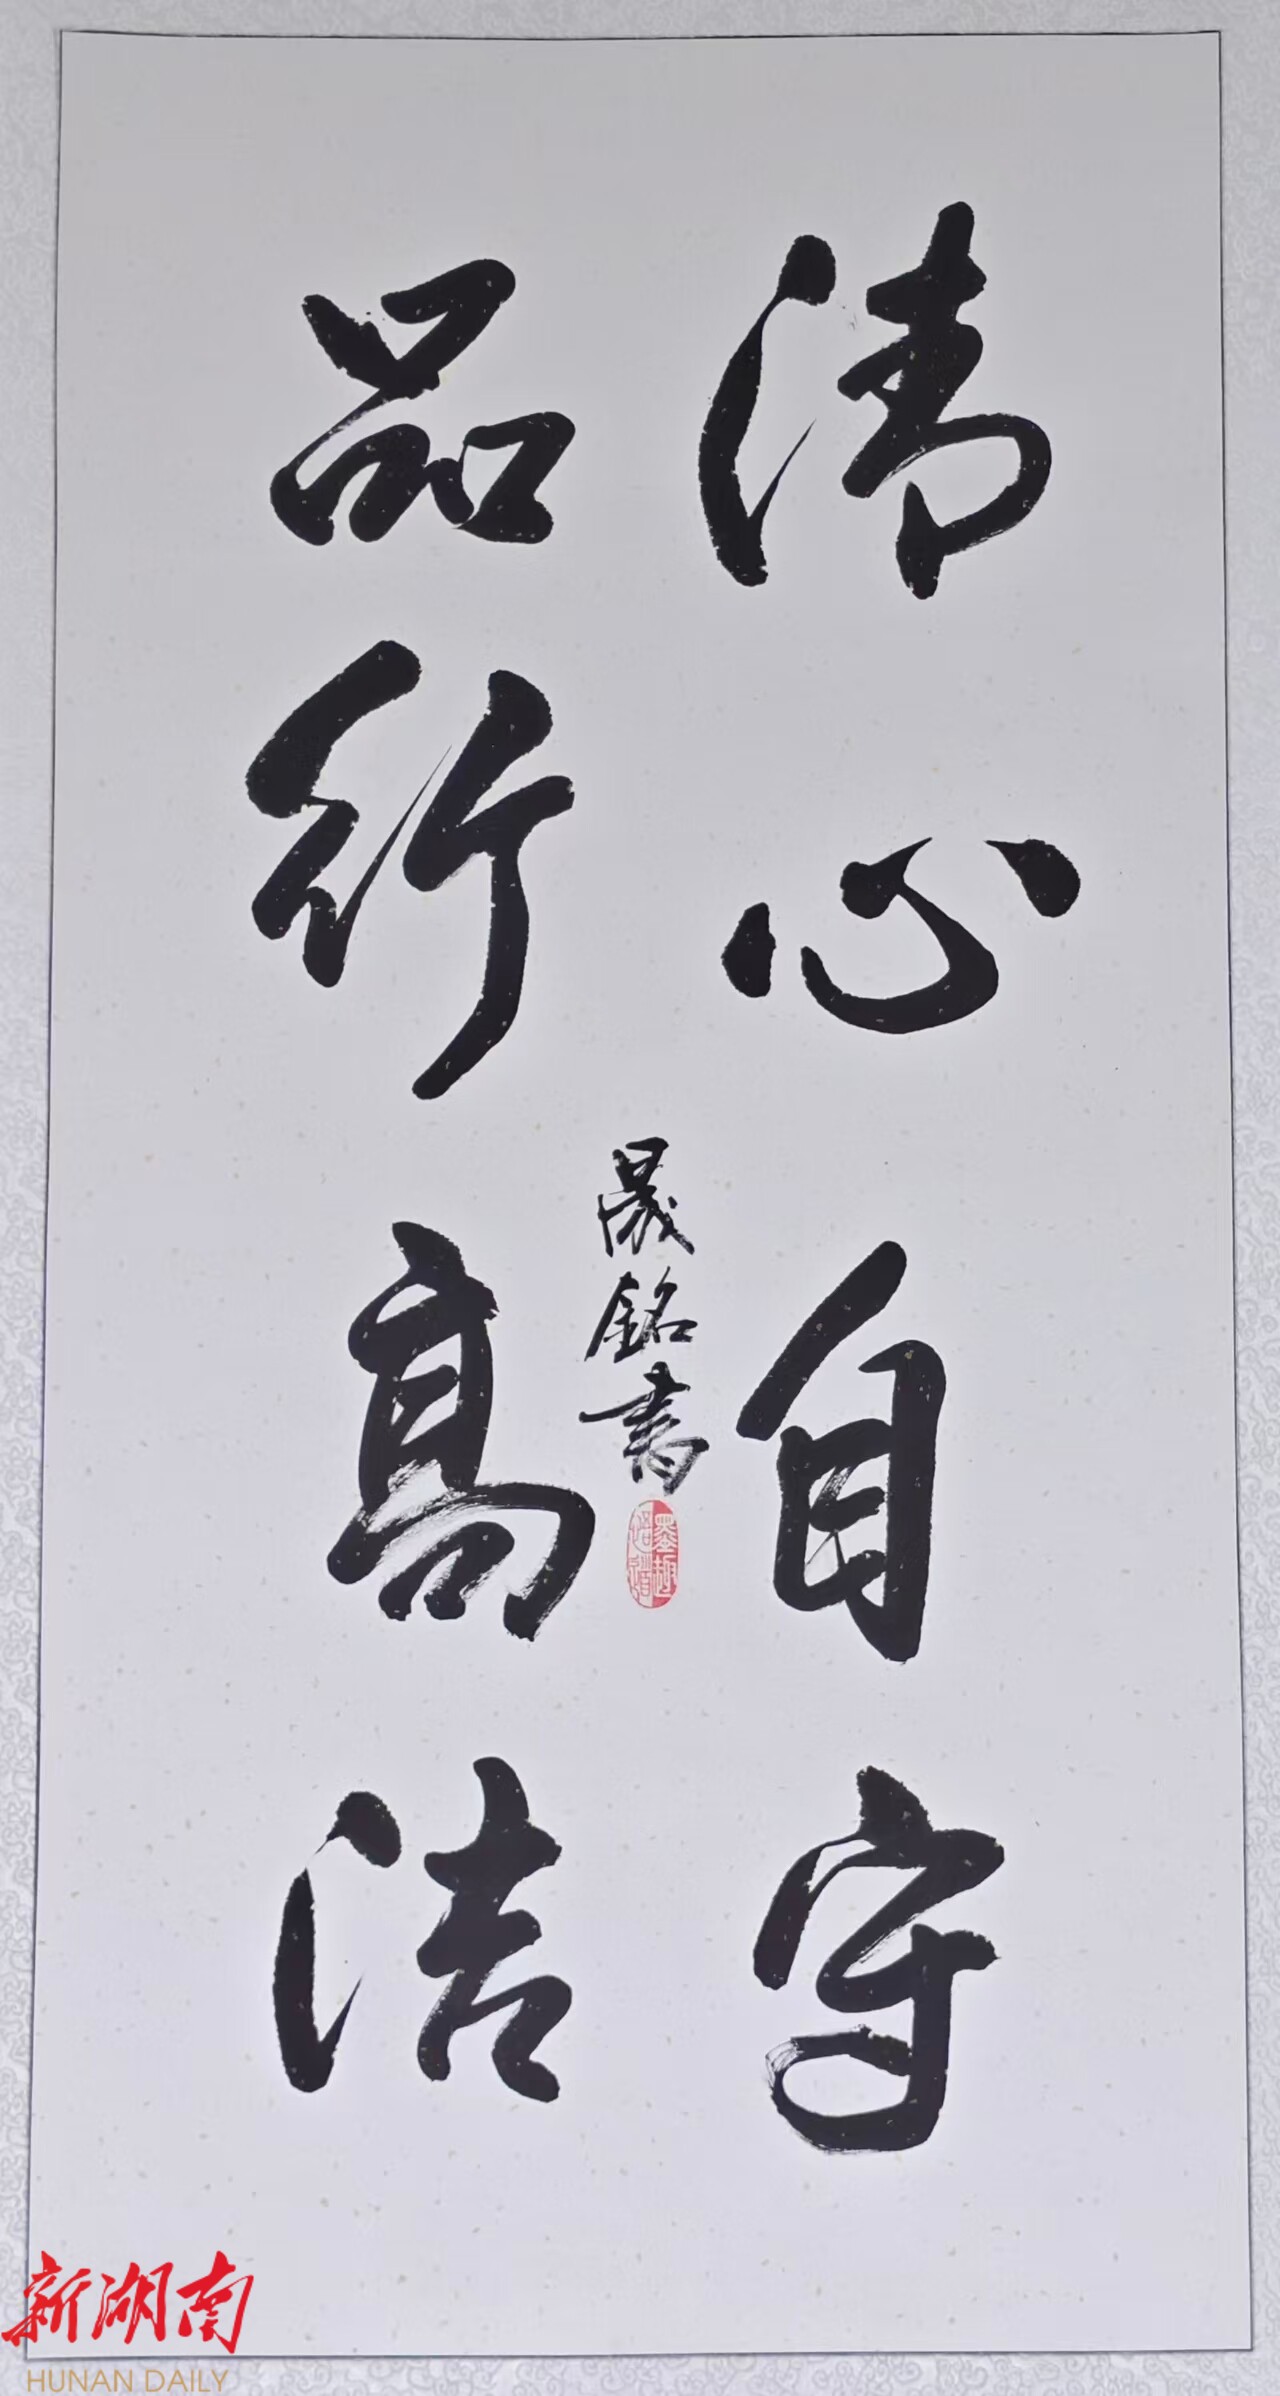 清心自守
品行高洁
晟銘書
新湖南
HUNAN DAILY